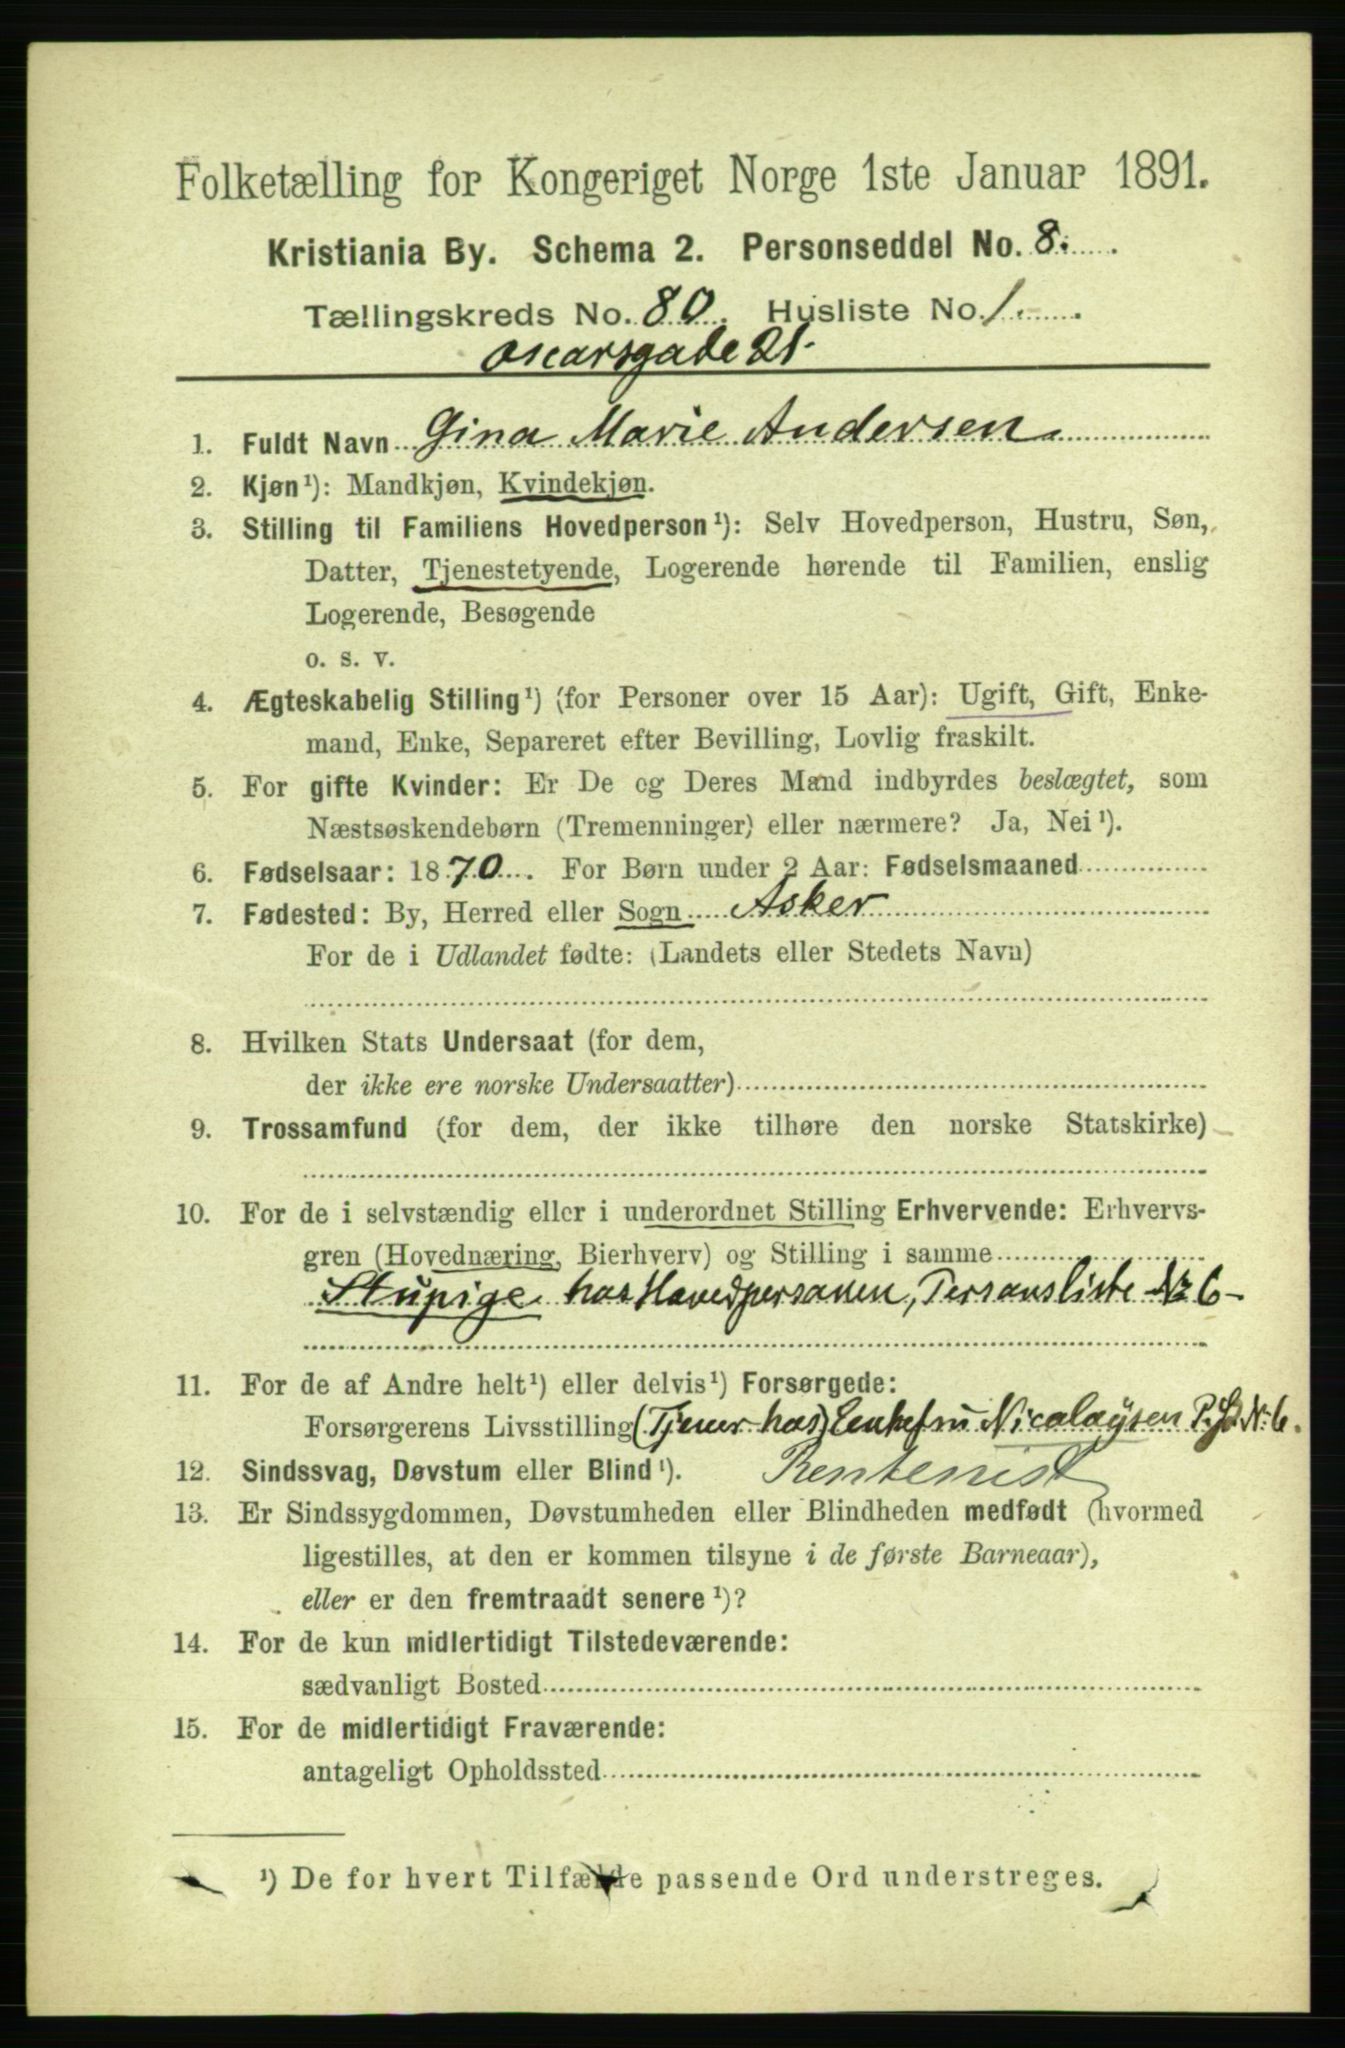 Folketælling for Kongeriget Norge 1ste Januar 1891.
Kristiania By. Schema 2. Personseddel No. 8.
Tællingskreds No. 80. Husliste No. 1.
Oscarsgade 21.
1. Fuldt Navn Gina Marie Andersen
2. Kjøn¹): Mandkjøn, Kvindekjøn.
3. Stilling til Familiens Hovedperson¹): Selv Hovedperson, Hustru, Søn,
Datter, Tjenestetyende, Logerende hørende til Familien, enslig
Logerende, Besøgende
o. s. v.
4. Ægteskabelig Stilling¹) (for Personer over 15 Aar): Ugift, Gift, Enke-
mand, Enke, Separeret efter Bevilling, Lovlig fraskilt.
5. For gifte Kvinder: Er De og Deres Mand indbyrdes beslægtet, som
Næstsøskendebørn (Tremenninger) eller nærmere? Ja, Nei¹).
6. Fødselsaar: 1870. For Børn under 2 Aar: Fødselsmaaned
7. Fødested: By, Herred eller Sogn Asker
For de i Udlandet fødte: (Landets eller Stedets Navn)
8. Hvilken Stats Undersaat (for dem,
der ikke ere norske Undersaatter)
9. Trossamfund (for dem, der ikke tilhøre den norske Statskirke)
10. For de i selvstændig eller i underordnet Stilling Erhvervende: Erhvervs-
gren (Hovednæring, Bierhverv) og Stilling i samme
Stupige hos Hovedpersonen, Personsliste No 6
11. For de af Andre helt¹) eller delvis¹) Forsørgede:
Forsørgerens Livsstilling (Tjener hos) Enkefru Nicolaysen P.S. N: 6.
12. Sindssvag, Døvstum eller Blind¹). Rentenist
13. Er Sindssygdommen, Døvstumheden eller Blindheden medfødt (hvormed
ligestilles, at den er kommen tilsyne i de første Barneaar),
eller er den fremtraadt senere¹)?
14. For de kun midlertidigt Tilstedeværende:
sædvanligt Bosted
15. For de midlertidigt Fraværende:
antageligt Opholdssted
¹) De for hvert Tilfælde passende Ord understreges.